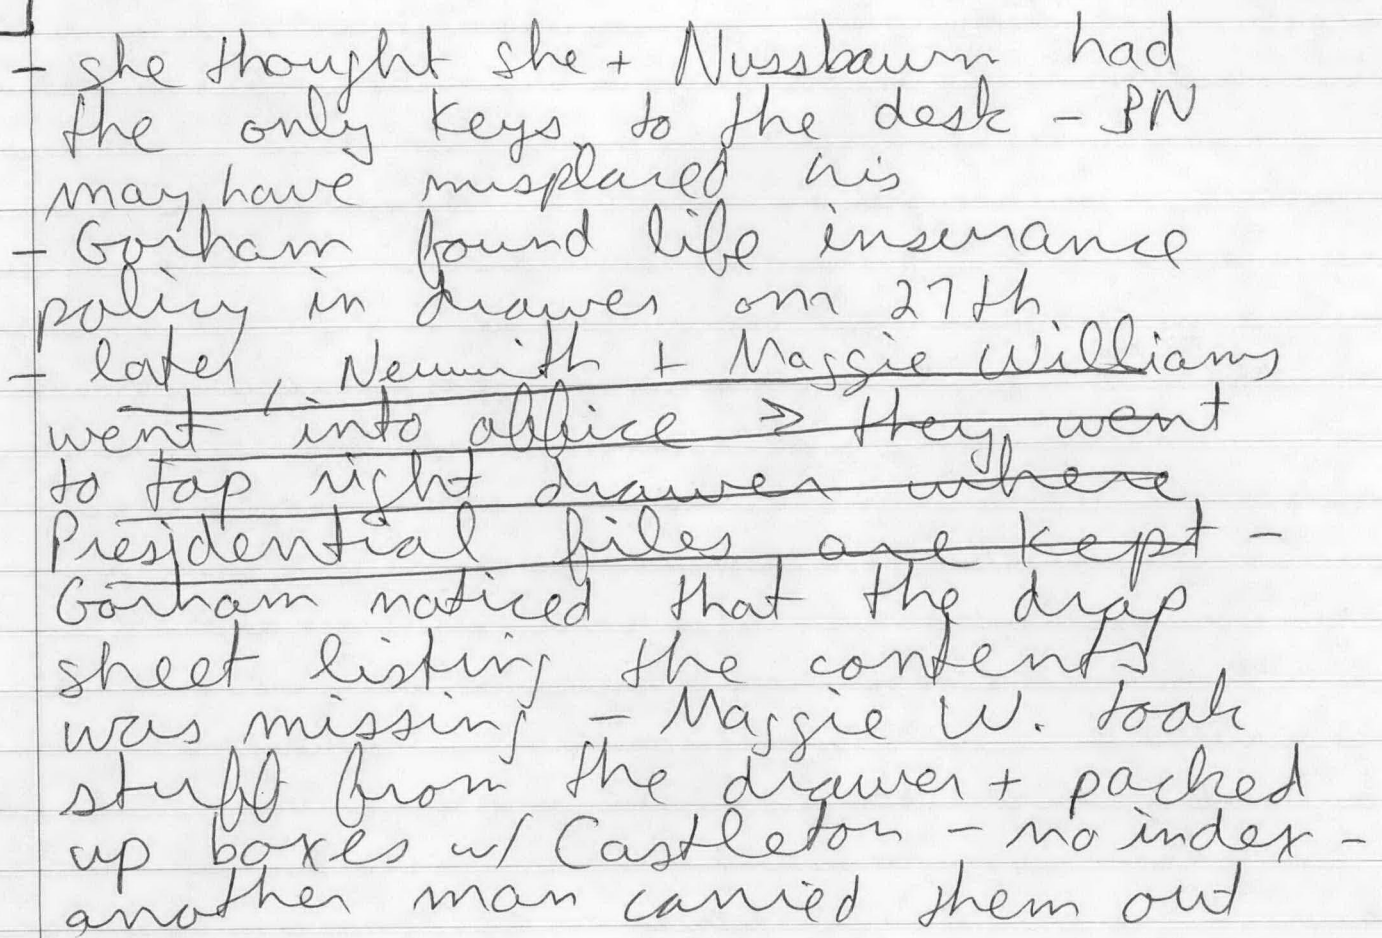 - she thought she + Nussbaum had
the only keys to the desk - BN
may have misplaced his
- Gorham found life insurance
policy in drawer on 27th
- later, Neuwirth + Maggie Williams
went into office > they went
to top right drawer where
Presidential files are kept -
Gorham noticed that the drap
sheet listing the contents
was missing - Maggie W. took
stuff from the drawer + packed
up boxes w/ Castleton - no index -
another man carried them out